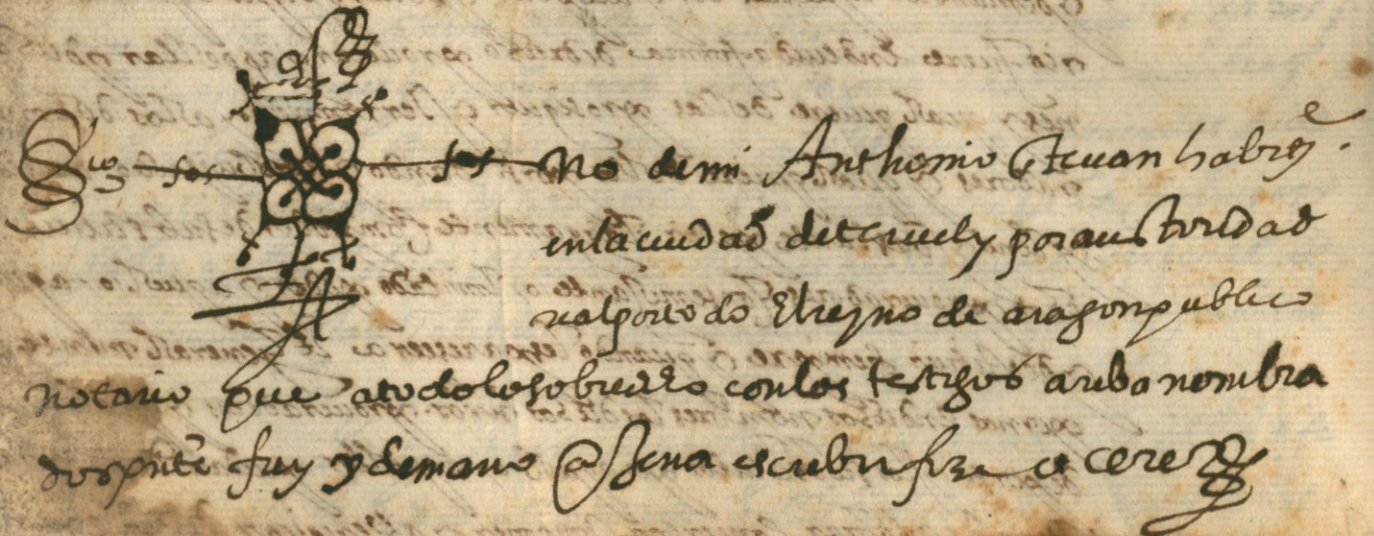 Sig no de mi Anthonio Esteuan habite
en la ciudad de teruel y por auctoridad
real por todo el reyno de aragon publico
notario que a todo lo sobredicho con los testigos arriba nombra
dos pnte fuy y de mano agena escrebir fize et cerre